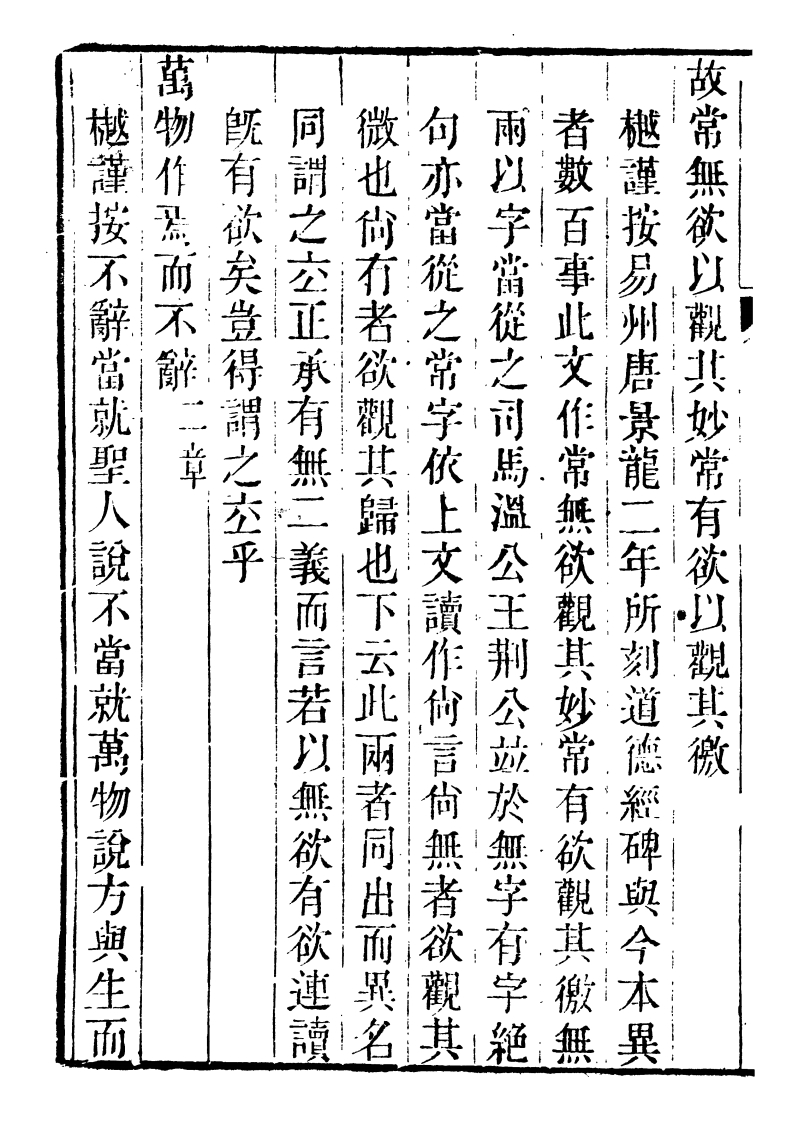 故常無欲以觀其妙常有欲以觀其徼
樾謹按易州唐景龍二年所刻道德經碑與今本異
者數百事此文作常無欲觀其妙常有欲觀其徼無
兩以字當從之司馬溫公王荆公竝於無字有字絶
句亦當從之常字依上文讀作尙言尙無者欲觀其
微也尙有者欲觀其歸也下云此兩者同出而異名
同謂之玄正承有無二義而言若以無欲有欲連讀
旣有欲矣豈得謂之玄乎
萬物作焉而不辭二章
樾謹按不辭當就聖人說不當就萬物說方與生而